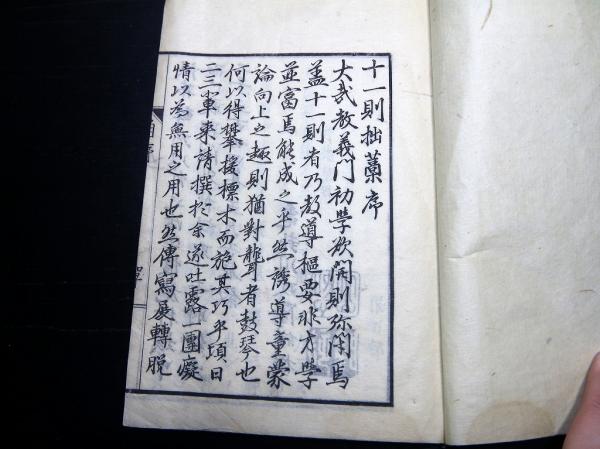 十一則拙藁序
大哉教義門初學欲開則弥閇焉
蓋十一則者乃教導樞要非才學
並富焉能成之乎然誘導童蒙
論向上之趣則猶對聾者鼓琴也
何以得攀援標木而施其巧乎頃日
二三軰来請撰於余遂吐露一團癡
情以為無用之用也然傳寫展轉脱